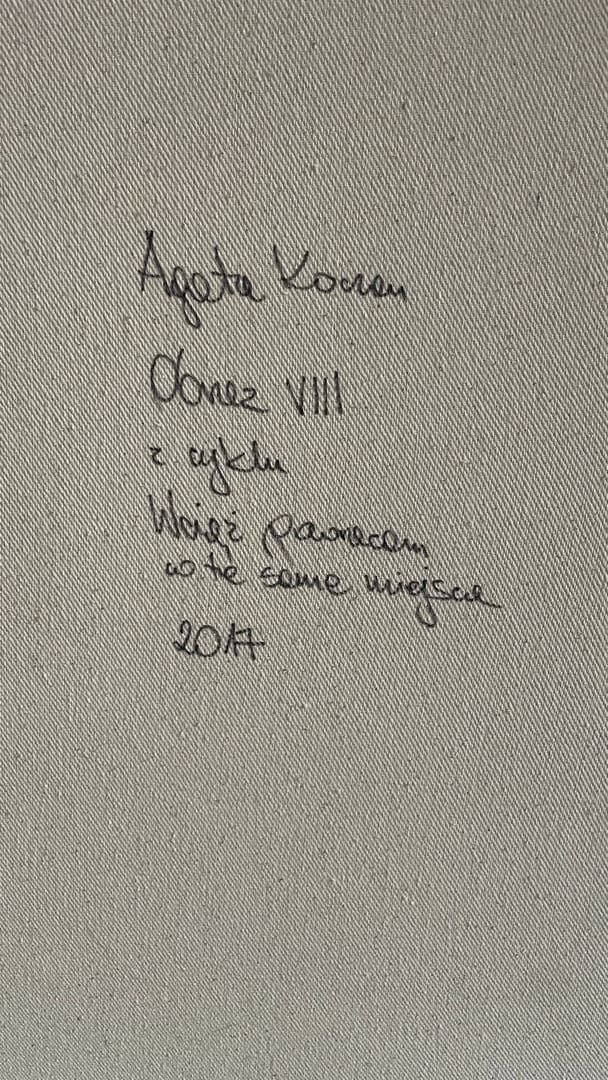 Agata
Obraz VIII
z cyklu
Wciąż powracam
w te same miejsca
2017